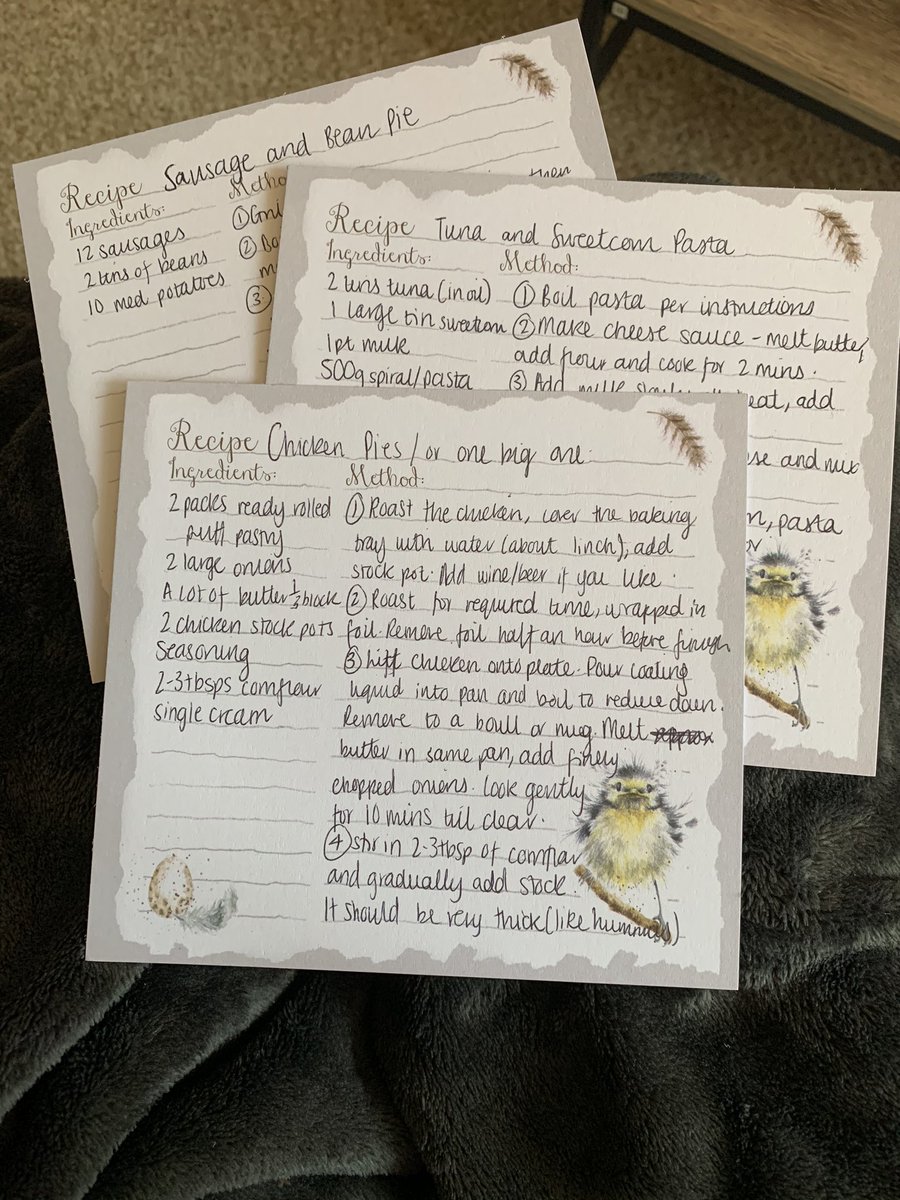 Recipe Sausage and Bean Pie
Ingredients:
12 sausages
2 tins of beans
10 med potatoes
Recipe Tuna and Sweetcorn Pasta
Ingredients: Method:
2 tins tuna (in oil) ① Boil pasta per instructions
1 large tin sweetcorn ② Make cheese sauce - melt butter,
1pt milk add flour and cook for 2 mins.
500g spiral/pasta ③ Add milk eat, add
and
pasta
Recipe Chicken Pies / or one big one.
Ingredients: Method:
2 packs ready rolled ① Roast the chicken, cover the baking
puff pastry tray with water (about 1inch), add
2 large onions stock pot. Add wine/beer if you like.
A lot of butter ½ block ② Roast for required time, wrapped in
2 chicken stock pots foil. Remove foil half an hour before finish
Seasoning ③ Lift chicken onto plate. Pour cooking
2-3tbsps cornflour liquid into pan and boil to reduce down.
single cream Remove to a bowl or mug. Melt
butter in same pan, add finely
chopped onions. Cook gently
for 10 mins till clear.
④ Stir in 2-3tbsp of cornflour
and gradually add stock.
It should be very thick (like hummus)